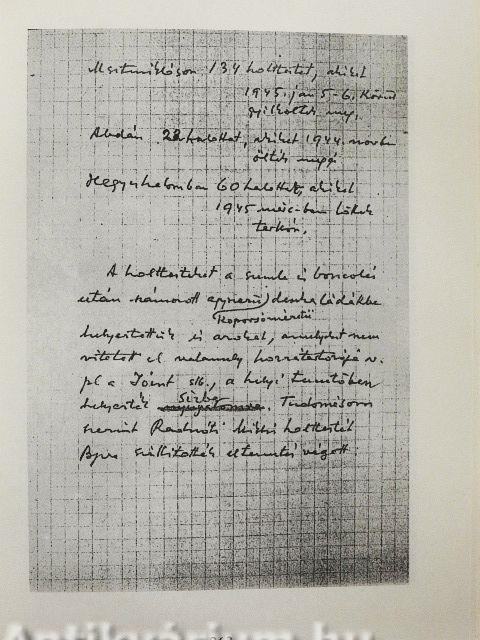 134 holttestet, akiket
1945. jan 5-6. körül
gyilkoltak meg.
Abdán 22 halottat, akiket 1944. novbr
öltek meg
Hegyeshalomban 60 halottat, akiket
1945 márc-ban lőttek
tarkón.
A holttesteket a szemle és boncolás
után számozott egyszerű deszkaládákba
koporsóméretű
helyezték és azokat, amelyeket nem
vitetett el valamely hozzátartozója v.
pl a Joint stb., a helyi temetőben
helyezték sírba. Tudomásom
szerint Radnóti Miklós holttestét
Bpre szállították eltemetés végett.
Antikvárium.hu